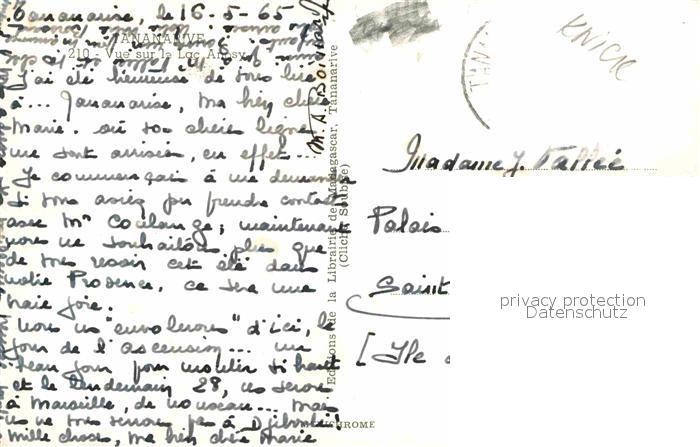 Tananarive, le 16-5-65
TANANARIVE
210 - Vue sur le Lac Anosy
J'ai été heureuse de vous lire
à... Tananarive, ma bien chère
Marie. où vos chères lignes
me sont arrivées, en effet...
Je commençais à me demander
si vous aviez pu prendre contact
avec Mme Coulange; maintenant
nous ne souhaitons plus que
de vous revoir cet été dans
notre Provence, ce sera une
vraie joie.
Nous nous "envolerons" d'ici, le
jour de l'Ascension... un
beau jour pour monter si haut
et le lendemain 28, nous serons
à Marseille, de nouveau... mais
nous ne nous verrons pas à Djibouti!
mille choses, ma bien chère Marie
Editions de la Librairie de Madagascar, Tananarive
(Cliché Soubise)
CHROME
TANA
KNICK
Madame J.
Palais
Saint
[Ile
privacy protection
Datenschutz